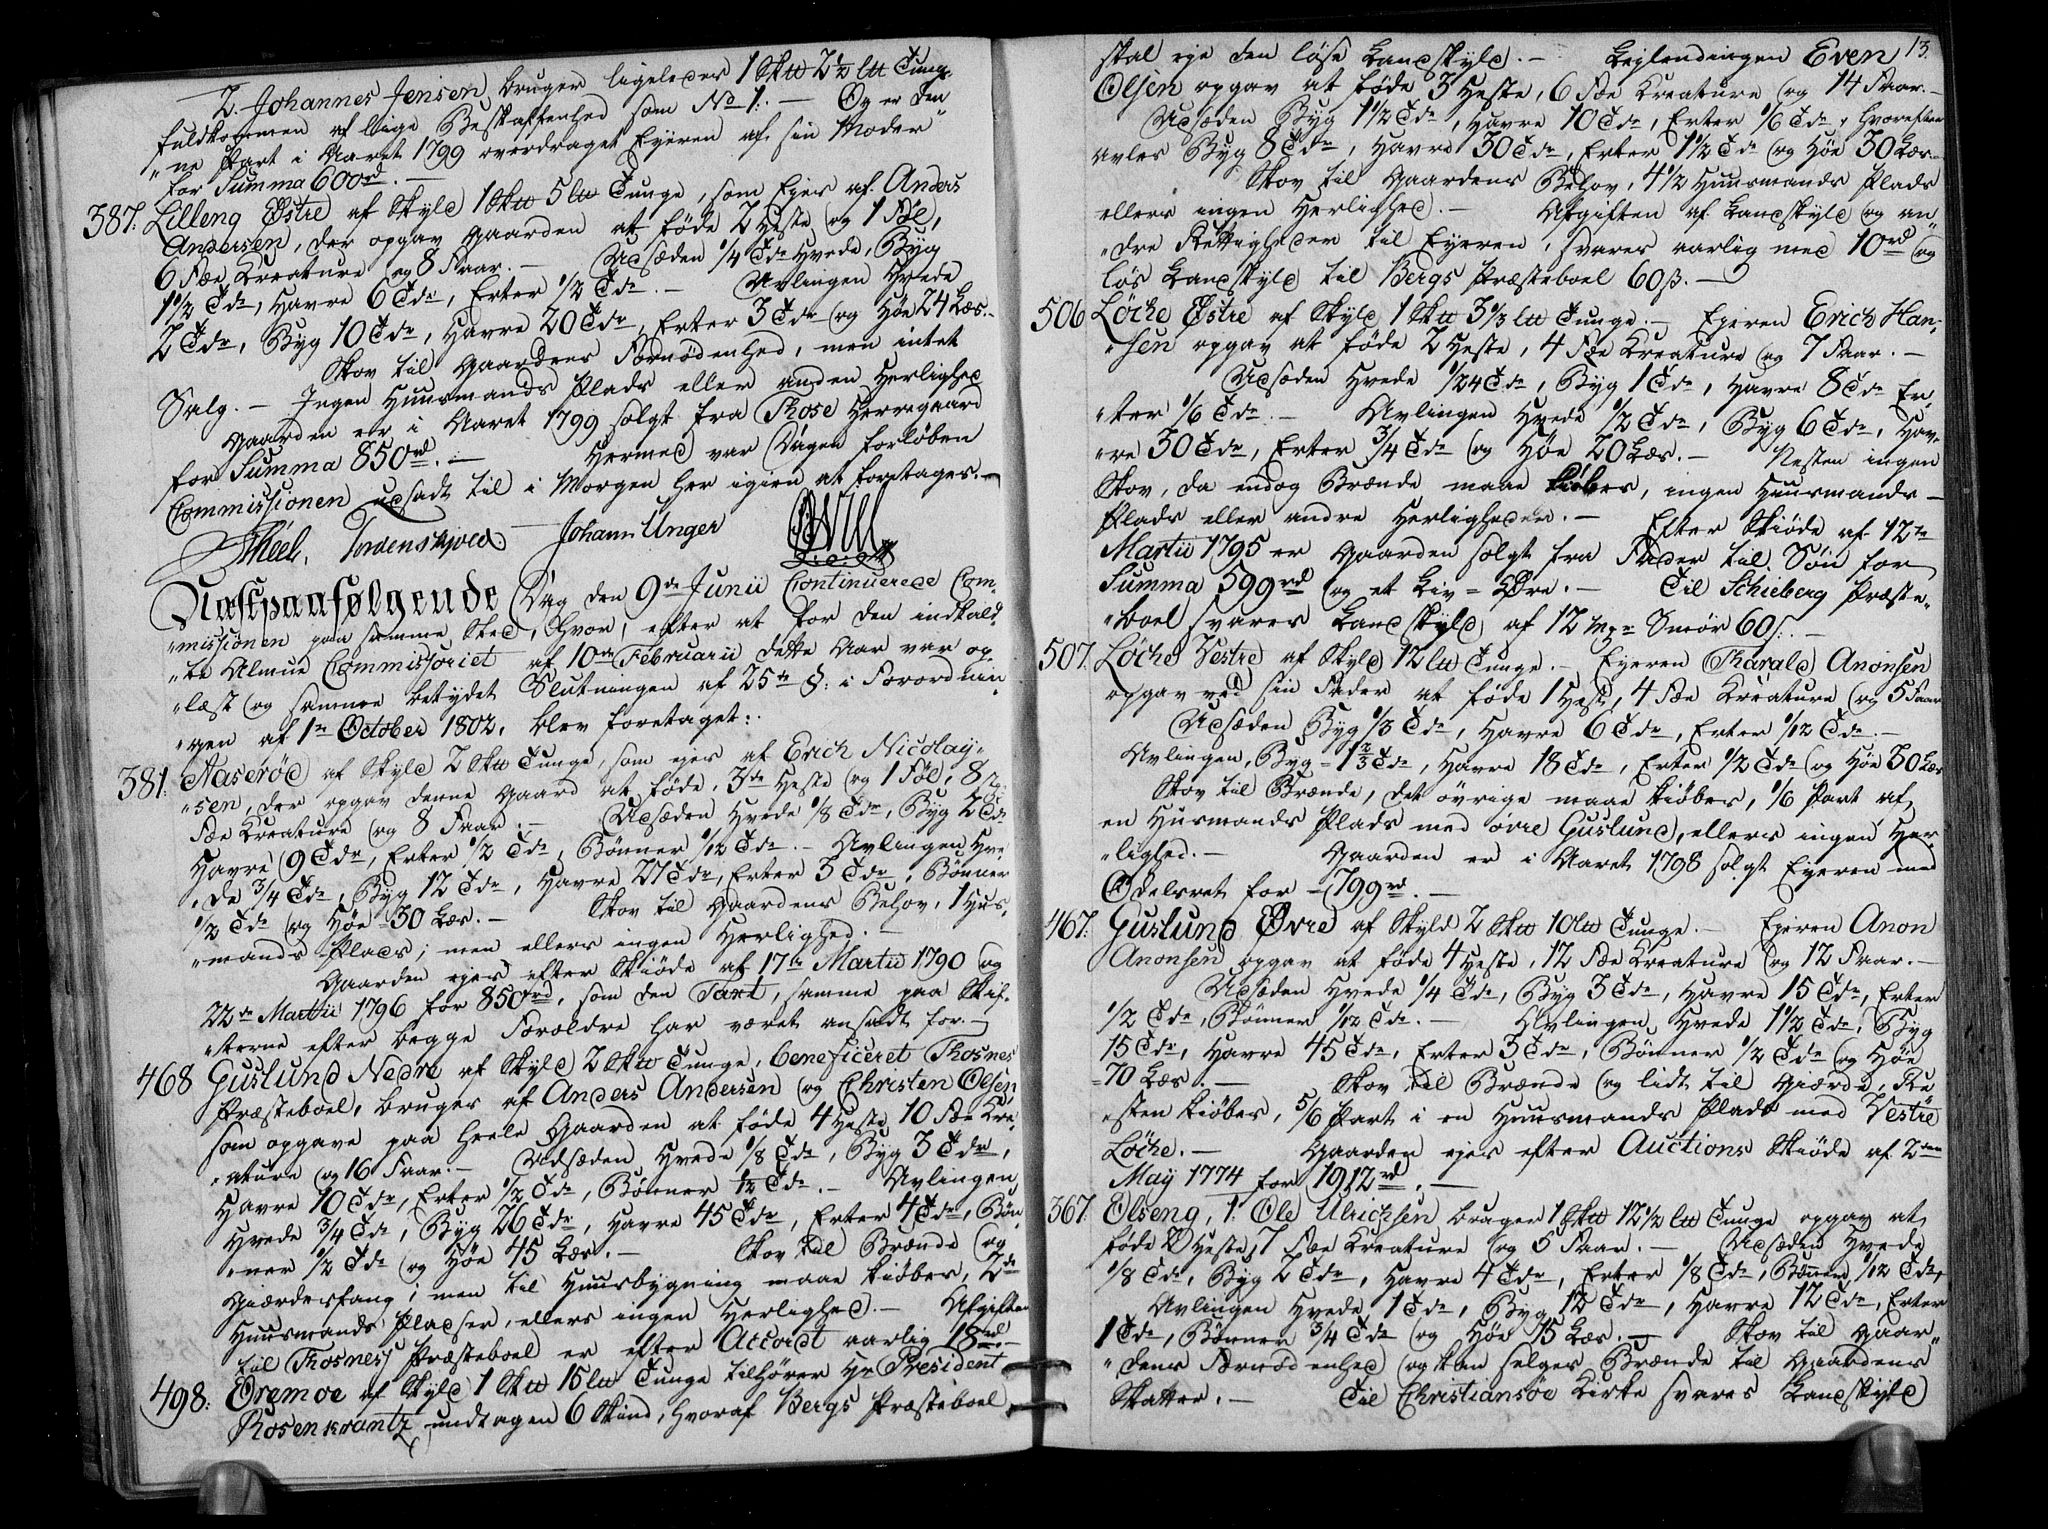 2. Johannes Jensen, bruger ligeledes 1 Sk℔ 2½ l℔ Tunge
fuldkommen af liige Beskaffenhed som No 1. — Og er den
"ne Part i Aaret 1799 overdraget Eyeren af sin Moder
for Summa 600rd. —
387: Lilleng Østre af Skyld 1 Sk℔ 5 l℔ Tunge, som Ejes af Anders
Andersen, der opgav Gaarden at føde 2 Heste og 1 Føl,
6 Fæe Kreature og 8 Faar. — Udsæden 1/4 Tde Hvede, Byg
1½ Tde, Havre 6 Tde, Erter ½ Tde. — Avlingen Hvede
2 Tde, Byg 10 Tde, Havre 20 Tde, Erter 3 Tde og Høe 24 Læs. —
Skov til Gaardens Fornødenhed, men intet
Salg. — Ingen Huusmands Plads eller anden Herlighed
Gaarden er i Aaret 1799 solgt fra Those Herregaard
for Summa 850rd. — Hermed var Dagen forløben
Commissionen udsadt til i Morgen her igien at foretages. —
Theel, Tordenskjold. Johann Unger
Næstpaafølgende Dag den 9de Junii Continuerede Com-
"missionen paa samme Sted, hvor, efter at for den indkald-
"te Almue Commissoriet af 10de Februarii dette Aar var op-
"læst og samme betydet Slutningen af 25de §: i Forordnin-
"gen af 1te October 1802, blev foretaget:
381: Naserød af Skyld 2 Sk℔ Tunge, som ejes af Erich Nicolay-
"sen, der opgav denne Gaard at føde, 3de Heste og 1 Føl, 8
Fæe Kreature og 8 Faar. — Udsæden Hvede 1/8 Tde, Byg 2 Tde
Havre 9 Tde, Erter ½ Tde, Bønner 1/12 Tde. — Avlingen Hve-
"de 3/4 Tde, Byg 12 Tde, Havre 27 Tde, Erter 3 Tde, Bønner
½ Tde og Høe 30 Læs. — Skov til Gaardens Behov, 1 Hus-
"mands Plads; men ellers ingen Herlighed. —
Gaarden ejes efter Skiøde af 17de Martii 1790 og
22de Martii 1796 for 850rd, som den Taxt, samme paa Skif-
"terne efter begge Forældre har været ansadt for. —
468 Guslund Nedre af Skyld 2 Sk℔ Tunge, beneficeret Thosnes
Præsteboel, bruges af Anders Andersen og Christen Olsen
som opgave paa heele Gaarden at føde 4 Heste 10 Fæe Kre-
"ature og 16 Faar. — Udsæden Hvede 1/8 Tde, Byg 3 Tde,
Havre 10 Tde, Erter ½ Tde, Bønner 1/12 Tde. — Avlingen
Hvede 3/4 Tde, Byg 26 Tde, Havre 45 Tde, Erter 4 Tde, Bøn-
"ner ½ Tde og Høe 45 Læs. — Skov til Brænde og
Giærdesfang; men til Huusbygning maae kiøbes, 2de
Huusmands Pladser, ellers ingen Herlighed. — Afgiften
til Thosness Præsteboel er efter Accordt aarlig 18rd. —
498: Oremoe af Skyld 1 Sk℔ 15 l℔ Tunge tilhører Hr President
Rosenkrantz undtagen 6 Skind, hvoraf Bergs Præsteboel
13.
skal eje den løse Landskyld. — Leylendingen Even
Olsen opgav at føde 3 Heste, 6 Fæe Kreature og 14 Faar. —
Udsæden Byg 1½ Tde, Havre 10 Tde, Erter 1/6 Tde, hvorefter
avles Byg 8 Tde, Havre 30 Tde, Erter 1½ Tde og Høe 30 Læs. —
Skov til Gaardens Behov, 4½ Huusmands Plads
ellers ingen Herlighed. — Afgiften af Landskyld og an-
"dre Rettigheder til Eyeren, svares aarlig med 10rd og
løs Landskyld til Bergs Præsteboel 60 ß. —
506 Løche Østre af Skyld 1 Sk℔ 3⅓ l℔ Tunge. — Ejeren Erich Han-
"sen opgav at føde 2 Heste, 4 Fæe Kreature og 7 Faar. —
Udsæden Hvede 1/24 Tde, Byg 1 Tde, Havre 8 Tde Er-
"ter 1/6 Tde. — Avlingen Hvede ½ Tde, Byg 6 Tde, Hav-
"re 30 Tde, Erter 3/4 Tde og Høe 20 Læs. — Nesten ingen
Skov, da endog Brænde maae kiøbes, ingen Huusmands
Plads eller andre Herligheder. — Efter Skiøde af 12te
Martii 1795 er Gaarden solgt fra Fader til Søn for
Summa 599rd og et Liv-Øre. — Til Schieberg Præste-
"boel svares Landskyld af 12 Mger Smør 60 ß. —
507. Løche Vestre af Skyld 12 l℔ Tunge. — Eyeren Tharald Anonsen
opgav ved sin Fader at føde 1 Hest, 4 Fæe Kreature og 5 Faar
Udsæden Byg 1/3 Tde, Havre 6 Tde, Erter 1/12 Tde. —
Avlingen, Byg 1⅔ Tde, Havre 18 Tde, Erter ½ Tde og Høe 30 Læs
Skov til Brænde, det øvrige maae kiøbes, 1/6 Part af
en Husmands Plads med øvre Guslund, ellers ingen Her-
"lighed. — Gaarden er i Aaret 1798 solgt Eyeren med
Odelsret for 799rd. —
467: Guslund Øvre af Skyld 2 Sk℔ 10 l℔ Tunge. — Ejeren Anon
Anonsen opgav at føde 4 Heste, 12 Fæe Kreature og 12 Faar. —
Udsæden Hvede 1/4 Tde, Byg 3 Tde, Havre 15 Tde, Erter
½ Tde, Bønner 1/12 Tde. — Avlingen, Hvede 1½ Tde, Byg
15 Tde, Havre 45 Tde, Erter 3 Tde, Bønner ½ Tde og Høe
70 Læs. — Skov til Brænde og lidt til Giærde, Re-
"sten kiøbes, 5/6 Part i en Huusmands Plads med Vestre
Løche. — Gaarden ejes efter Auctions Skiøde af 2den
May 1774 for 1912rd. —
367: Olseng, 1. Ole Ulrichsen bruger 1 Sk℔ 12½ l℔ Tunge opgav at
føde 2 Heste, 7 Fæe Kreature og 6 Faar. — Udsæden Hvede
1/8 Tde, Byg 2 Tde, Havre 4 Tde, Erter 1/8 Tde, Bønner 1/12 Tde,
Avlingen Hvede 1 Tde, Byg 12 Tde, Havre 12 Tde, Erter
1 Tde, Bønner 3/4 Tde og Høe 15 Læs. — Skov til Gaar-
"dens Fornødenhed og kan selges Brænde til Gaardens
Skatter. — Til Christiansøe Kirke svares Landskyld